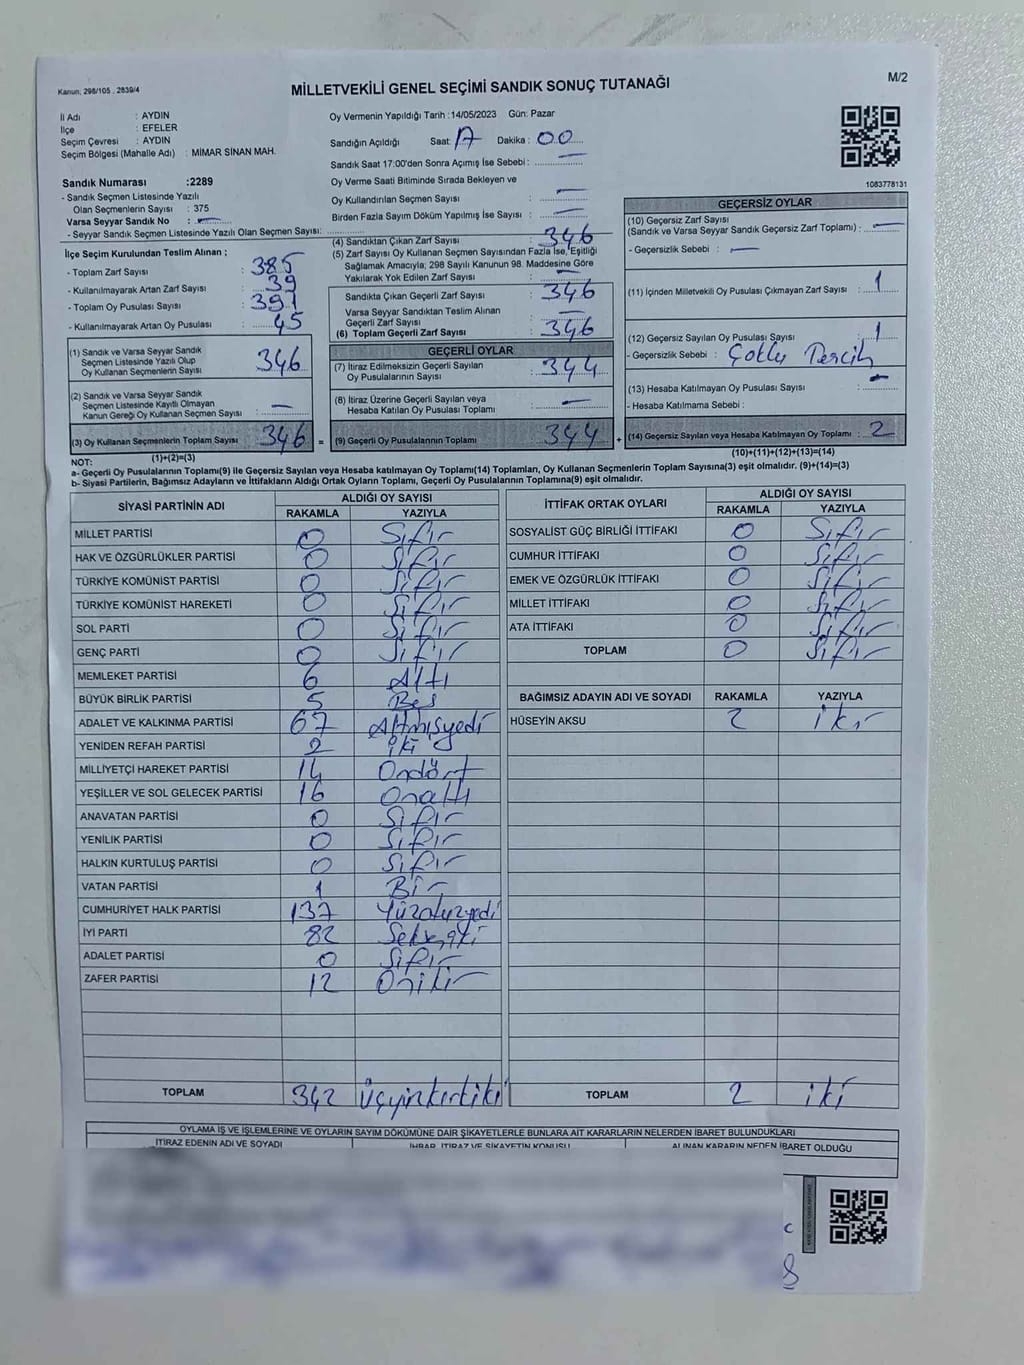 Kanun; 298/105 , 2839/4
MİLLETVEKİLİ GENEL SEÇİMİ SANDIK SONUÇ TUTANAĞI
M/2
İl Adı : AYDIN
İlçe : EFELER
Seçim Çevresi : AYDIN
Seçim Bölgesi (Mahalle Adı) : MİMAR SİNAN MAH.
Sandık Numarası :2289
- Sandık Seçmen Listesinde Yazılı
Olan Seçmenlerin Sayısı : 375
Varsa Seyyar Sandık No : —
- Seyyar Sandık Seçmen Listesinde Yazılı Olan Seçmen Sayısı:
Oy Vermenin Yapıldığı Tarih :14/05/2023 Gün: Pazar
Sandığın Açıldığı Saat: 17 Dakika : 00
Sandık Saat 17:00'den Sonra Açımış İse Sebebi : —
Oy Verme Saati Bitiminde Sırada Bekleyen ve
Oy Kullandırılan Seçmen Sayısı —
Birden Fazla Sayım Döküm Yapılmış İse Sayısı : —
1083778131
İlçe Seçim Kurulundan Teslim Alınan ;
- Toplam Zarf Sayısı : 385
- Kullanılmayarak Artan Zarf Sayısı : 39
- Toplam Oy Pusulası Sayısı : 391
- Kullanılmayarak Artan Oy Pusulası : 45
(1) Sandık ve Varsa Seyyar Sandık
Seçmen Listesinde Yazılı Olup
Oy Kullanan Seçmenlerin Sayısı : 346
(2) Sandık ve Varsa Seyyar Sandık
Seçmen Listesinde Kayıtlı Olmayan
Kanun Gereği Oy Kullanan Seçmen Sayısı : —
(3) Oy Kullanan Seçmenlerin Toplam Sayısı : 346 =
(1)+(2)=(3)
(4) Sandıktan Çıkan Zarf Sayısı : 346
(5) Zarf Sayısı Oy Kullanan Seçmen Sayısından Fazla İse, Eşitliği
Sağlamak Amacıyla; 298 Sayılı Kanunun 98. Maddesine Göre
Yakılarak Yok Edilen Zarf Sayısı : —
Sandıkta Çıkan Geçerli Zarf Sayısı : 346
Varsa Seyyar Sandıktan Teslim Alınan
Geçerli Zarf Sayısı : —
(6) Toplam Geçerli Zarf Sayısı : 346
GEÇERLİ OYLAR
(7) İtiraz Edilmeksizin Geçerli Sayılan
Oy Pusulalarının Sayısı : 344
(8) İtiraz Üzerine Geçerli Sayılan veya
Hesaba Katılan Oy Pusulası Toplamı : —
(9) Geçerli Oy Pusulalarının Toplamı : 344 +
GEÇERSİZ OYLAR
(10) Geçersiz Zarf Sayısı
(Sandık ve Varsa Seyyar Sandık Geçersiz Zarf Toplamı) : —
- Geçersizlik Sebebi : —
(11) İçinden Milletvekili Oy Pusulası Çıkmayan Zarf Sayısı : 1
(12) Geçersiz Sayılan Oy Pusulası Sayısı : 1
- Geçersizlik Sebebi : Çoklu Tercih
(13) Hesaba Katılmayan Oy Pusulası Sayısı : —
- Hesaba Katılmama Sebebi :
(14) Geçersiz Sayılan veya Hesaba Katılmayan Oy Toplamı : 2
(10)+(11)+(12)+(13)=(14)
NOT:
a- Geçerli Oy Pusulalarının Toplamı(9) ile Geçersiz Sayılan veya Hesaba katılmayan Oy Toplamı(14) Toplamları, Oy Kullanan Seçmenlerin Toplam Sayısına(3) eşit olmalıdır. (9)+(14)=(3)
b- Siyasi Partilerin, Bağımsız Adayların ve İttifakların Aldığı Ortak Oyların Toplamı, Geçerli Oy Pusulalarının Toplamına(9) eşit olmalıdır.
SİYASİ PARTİNİN ADI ALDIĞI OY SAYISI
RAKAMLA YAZIYLA
MİLLET PARTİSİ 0 Sıfır
HAK VE ÖZGÜRLÜKLER PARTİSİ 0 Sıfır
TÜRKİYE KOMÜNİST PARTİSİ 0 Sıfır
TÜRKİYE KOMÜNİST HAREKETİ 0 Sıfır
SOL PARTİ 0 Sıfır
GENÇ PARTİ 0 Sıfır
MEMLEKET PARTİSİ 6 Altı
BÜYÜK BİRLİK PARTİSİ 5 Beş
ADALET VE KALKINMA PARTİSİ 67 Altmışyedi
YENİDEN REFAH PARTİSİ 2 iki
MİLLİYETÇİ HAREKET PARTİSİ 14 Ondört
YEŞİLLER VE SOL GELECEK PARTİSİ 16 Onaltı
ANAVATAN PARTİSİ 0 Sıfır
YENİLİK PARTİSİ 0 Sıfır
HALKIN KURTULUŞ PARTİSİ 0 Sıfır
VATAN PARTİSİ 1 Bir
CUMHURİYET HALK PARTİSİ 137 Yüzotuzyedi
İYİ PARTİ 82 Sekseniki
ADALET PARTİSİ 0 Sıfır
ZAFER PARTİSİ 12 Oniki
TOPLAM 342 Üçyüzkırkiki
İTTİFAK ORTAK OYLARI ALDIĞI OY SAYISI
RAKAMLA YAZIYLA
SOSYALİST GÜÇ BİRLİĞİ İTTİFAKI 0 Sıfır
CUMHUR İTTİFAKI 0 Sıfır
EMEK VE ÖZGÜRLÜK İTTİFAKI 0 Sıfır
MİLLET İTTİFAKI 0 Sıfır
ATA İTTİFAKI 0 Sıfır
TOPLAM 0 Sıfır
BAĞIMSIZ ADAYIN ADI VE SOYADI RAKAMLA YAZIYLA
HÜSEYİN AKSU 2 iki
TOPLAM 2 iki
OYLAMA İŞ VE İŞLEMLERİNE VE OYLARIN SAYIM DÖKÜMÜNE DAİR ŞİKAYETLERLE BUNLARA AİT KARARLARIN NELERDEN İBARET BULUNDUKLARI
İTİRAZ EDENİN ADI VE SOYADI İHBAR, İTİRAZ VE ŞİKAYETİN KONUSU ALINAN KARARIN NEDEN İBARET OLDUĞU